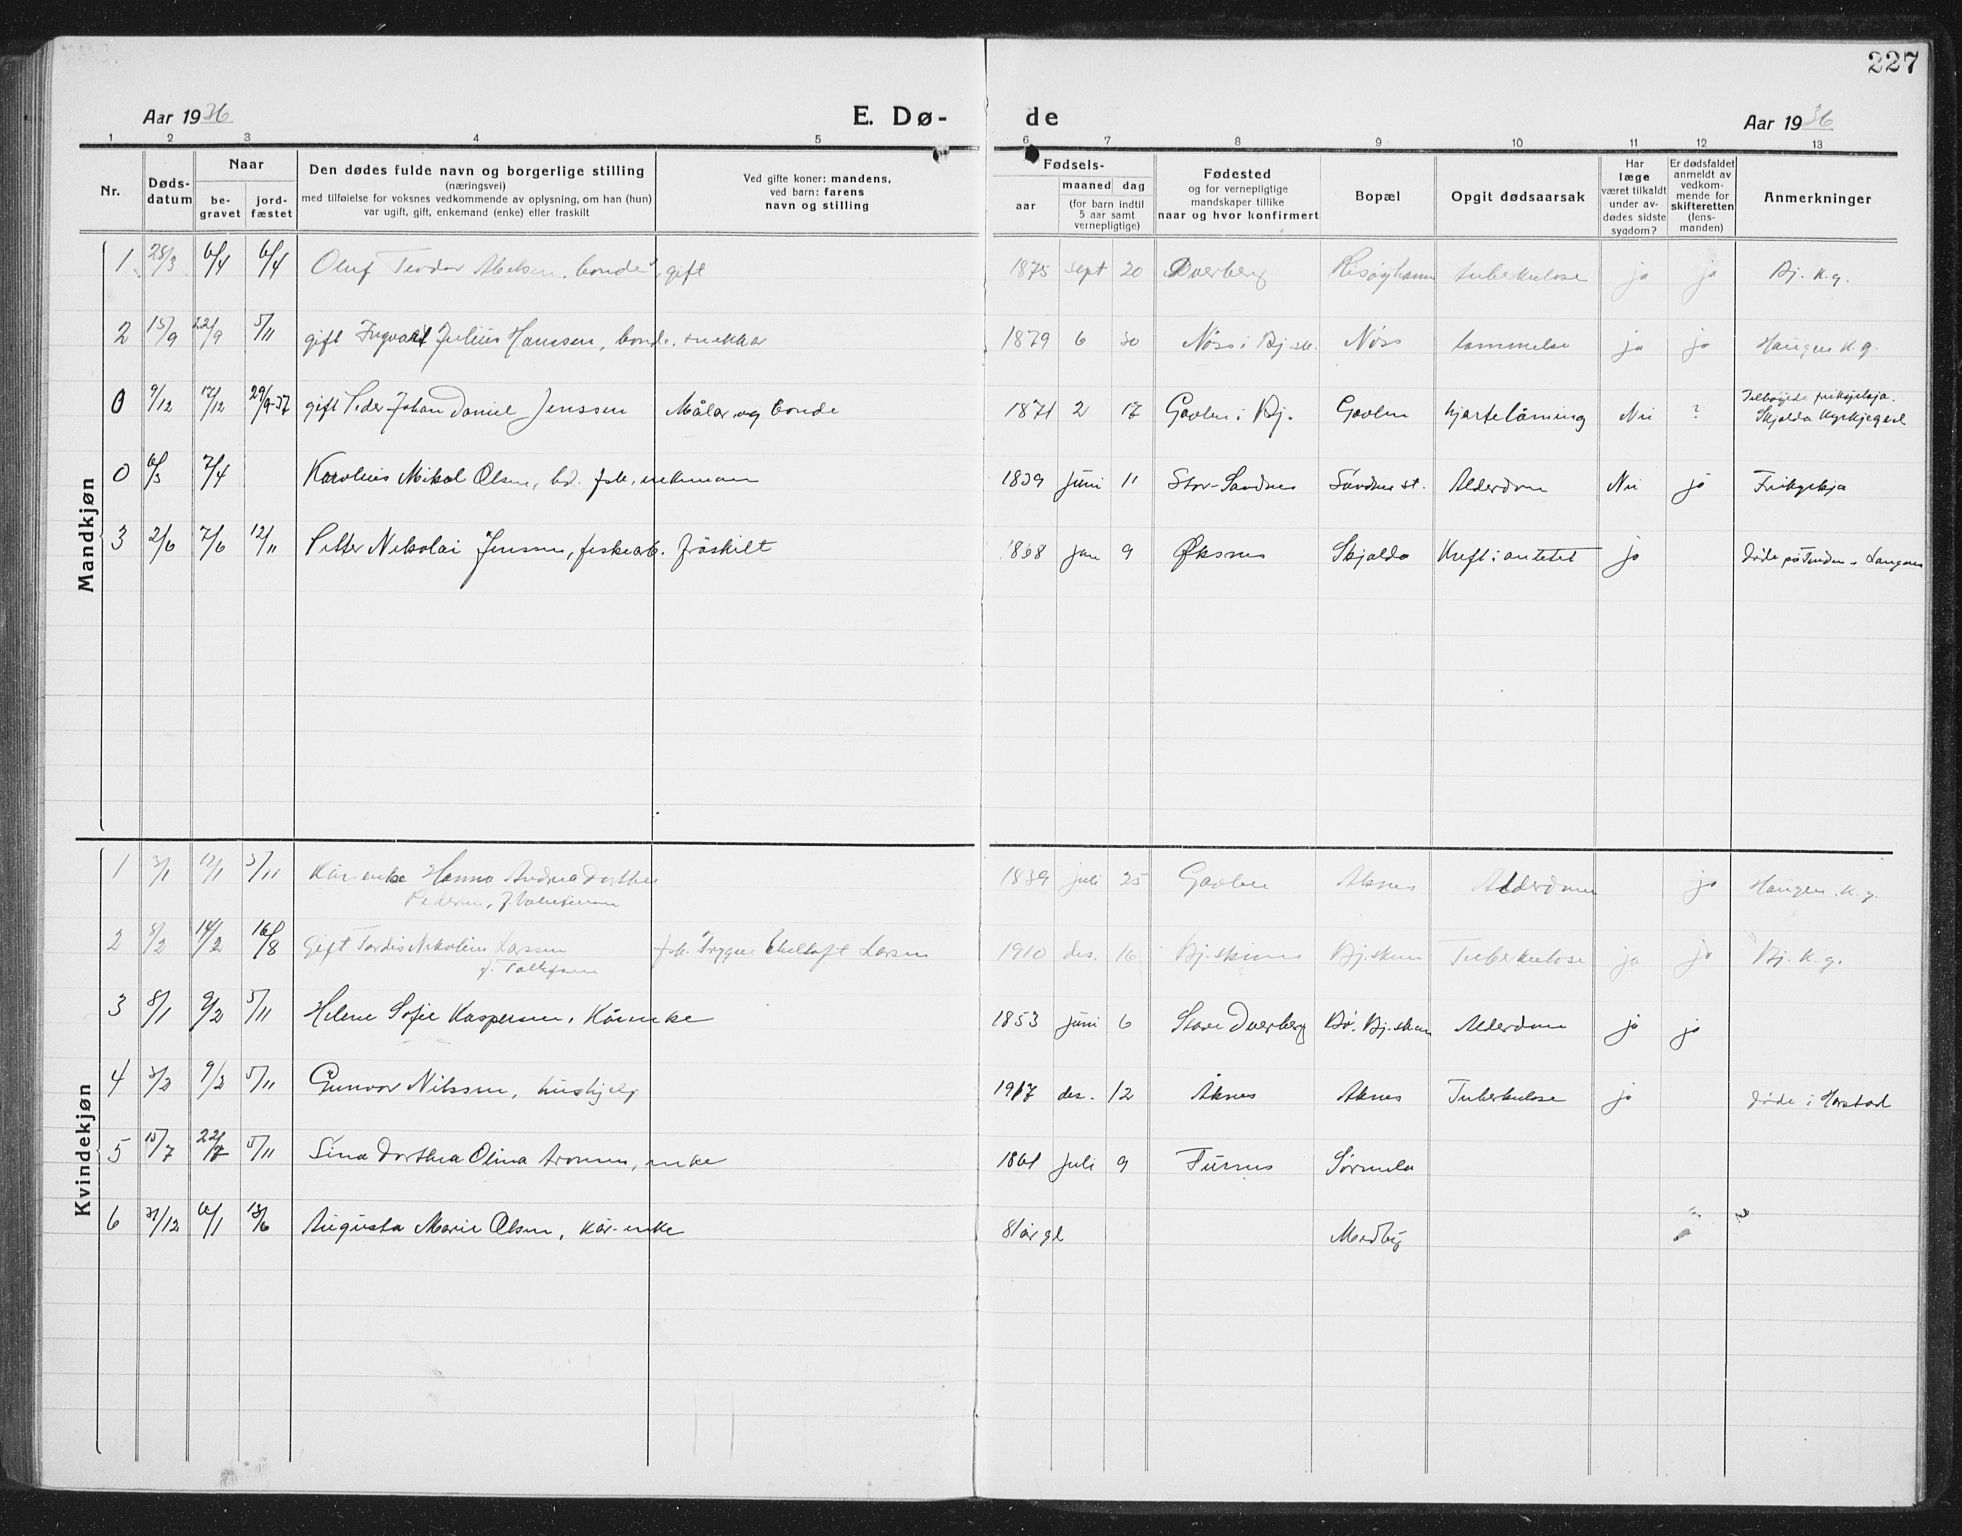 227
Aar 1936 E. Dø- de Aar 1936
1 2 3 4 5 6 7 8 9 10 11 12 13
Nr.
Døds-
datum
Naar
be-
gravet
jord-
fæstet
Den dødes fulde navn og borgerlige stilling
(næringsvei)
med tilføielse for voksnes vedkommende av oplysning, om han (hun)
var ugift, gift, enkemand (enke) eller fraskilt
Ved gifte koner: mandens,
ved barn: farens
navn og stilling
Fødsels-
aar
maaned dag
(for barn indtil
5 aar samt
vernepligtige)
Fødested
og for vernepligtige
mandskaper tillike
naar og hvor konfirmert
Bopæl
Opgit dødsaarsak
Har
læge
været tilkaldt
under av-
dødes sidste
sygdom?
Er dødsfaldet
anmeldt av
vedkom-
mende for
skifteretten
(lens-
manden)
Anmerkninger
Mandkjøn
1 28/3 6/4 6/4 Oluf Teodor Abelsen, bonde, gift 1875 sept 20 Dverberg Risøyhamn tuberkulose ja ja Bj. k.g.
2 15/9 22/9 5/11 gift Ingvart Julius Hansen, bonde, snekkar 1879 6 30 Nöss i Bj.sk. Nöss lammelse ja ja Haugen k.g.
0 9/12 17/12 29/9-37 gift Peder Johan Daniel Jenssen Målar og bonde 1871 2 17 Gavlen i Bj. Gavlen hjartelåming Nei ?
Skjolda kyrkjegard
0 6/3 7/4 Karolius Mikal Olsen, bd. fsk, enkmann 1839 juni 11 Stor-Sandnes Sandnes st. Alderdom Nei ja Frikyrkja
3 2/6 7/6 12/11 Petter Nikolai Jenssen, fiskearb. fråskilt 1868 jan 9 Øksnes Skjolda Kreft i ja döde på Tinden - Langenes
Kvindekjøn
1 3/1 12/1 5/11 Kår-enke Hanna Andrea Dorthea 1839 juli 25 Gavlen Åknes Alderdom ja Haugen k.g.
Pedersen,
2 5/2 14/2 16/8 Gift Tordis Nikoline Larsen fsk. Trygve Eheltoft Larsen 1910 des. 16 Bj.skinn Bj.skinn Tuberkulose ja ja Bj. k.g.
f. Tollefsen
3 8/1 9/2 5/11 Helene Sofie Kaspersen, Kårenke 1853 juni 6 Stave Dverberg Bö. Bj.skinn Alderdom ja ja
4 3/2 9/2 5/11 Gunvor Nilssen, hushjelp 1917 des. 12 Åknes Åknes Tuberkulose ja döde i Harstad
5 15/7 22/7 5/11 Sina Dorthea Olina Aronsen, enke 1861 juli 9 Turnes Sørmela
6 31/12 6/1 13/6 Augusta Marie Olsen, kår-enke 81 år gl Medby